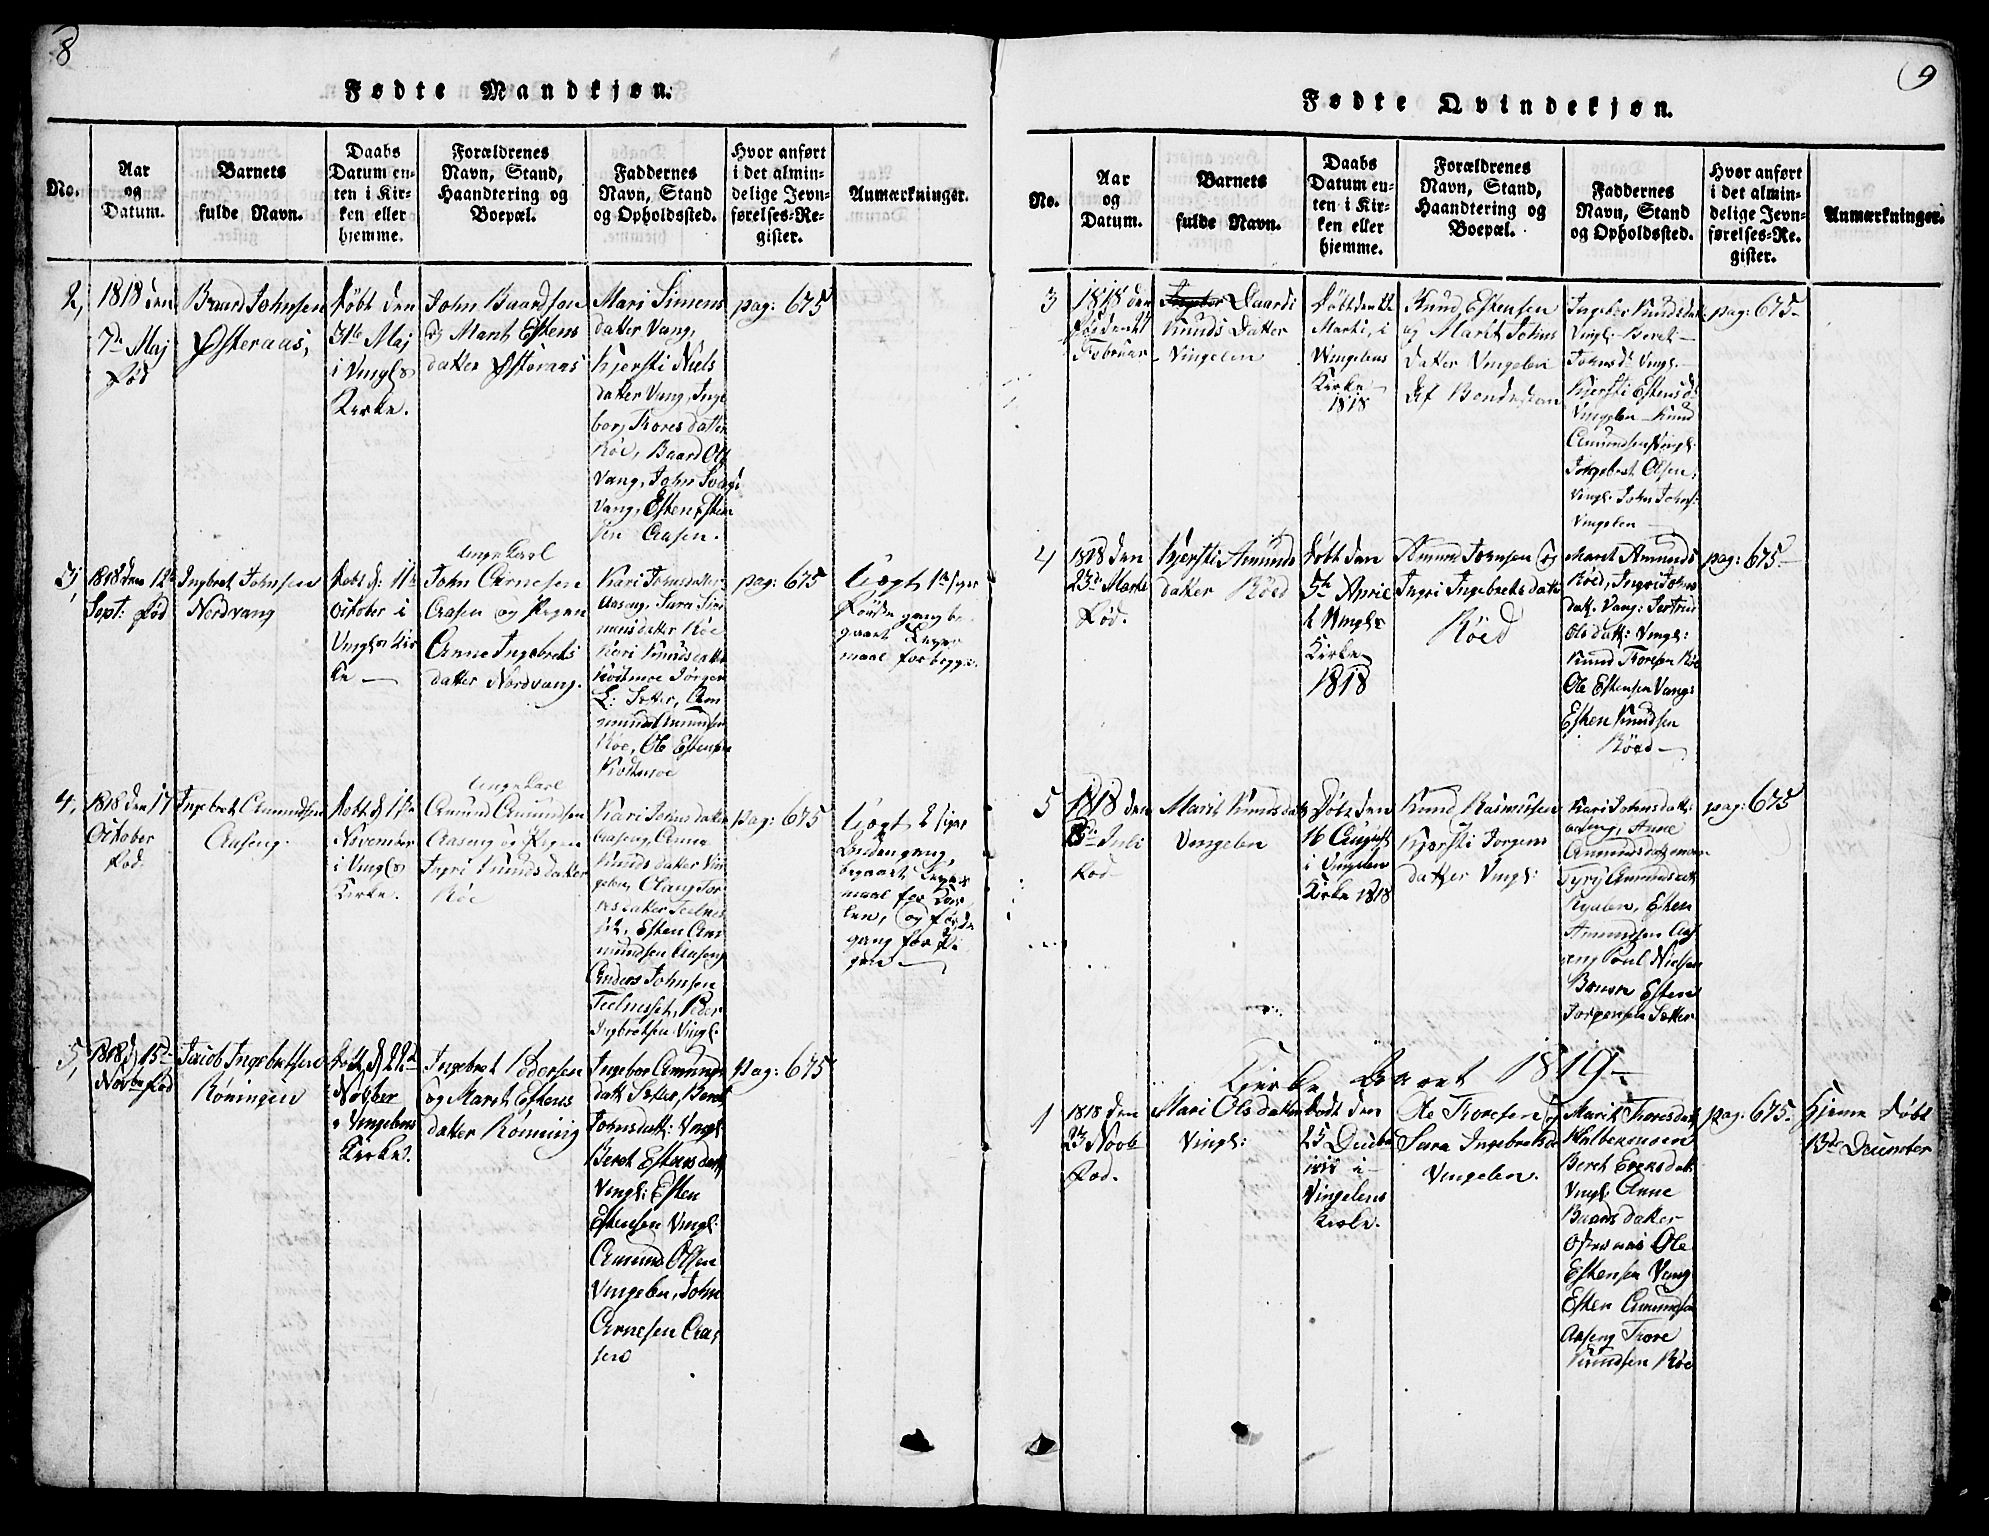 8
Fødte Mandkjøn.
No.
Aar
og
Datum.
Barnets
fulde Navn.
Daabs
Datum en-
ten i Kir-
ken eller
hjemme.
Forældrenes
Navn, Stand,
Haandtering og
Boepæl.
Faddernes
Navn, Stand
og Opholdssted.
Hvor anført
i det almin-
delige Jevn-
førelses-Re-
gister.
Anmærkninger.
2,
1818 den
7de Maj
Fød
Baard Johnsen
Østeraas,
Døbt den
31te Maj
i Vingls
Kirke.
John Baardsen
og Marit Estens
datter Østeraas
Mari Simens
datter Vang,
Kjersti Niels
datter Vang, Inge
bor, Thores datter
Røe, Baard Ols
Vang, John
Vang, Esten Esten
sen Aasen.
pag: 675
3,
1818 den 12te
Sept: Fød
Ingbret Johnsen
Nordvang
Døbt d: 11te
October i
Vingls Kir
ke —
Ungekarl
John Arnesen
Aasen og Pigen
Anne Ingebrets
datter Nordvang.
Kari Johnsdatter
Aaseng, Sara Si
monsdatter Røe
Kari Knudsdatter
Kodtmoe Jørgen
E: Sæter, Am
mund Amundsen
Røe, Ole Estensen
Kodtmoe
pag: 675
begge.
4,
1818 den 17
October
Fød.
Ingebret Amundsen
Aaseng.
Døbt d 1ste
November
i Vingls
Kirke.
Ungekarl
Amund Amundsen
Aaseng og Pigen
Ingri Knudsdatter
Røe
Kari Johns datter
Aaseng, Anne
Knuds datter Vin
gelen, Olaug Tor
res datter Telnes
set, Esten Am
mundsen Aaseng
Anders Johnsen
Telnesset, Peder
Ingbretsen Vingl.
pag: 675
5,
1818 d, 15de
Novbr Fød
Jacob Ingebretsen
Røningen
Døbt d, 22de
Novber
i Vingelens
Kirke.
Ingebret Pedersen
og Marit Estens
datter Rønning
Ingebor Amunds
datt Sæter, Beret
Johnsdatt: Vingl
Beret Estensdatt,
Vingl: Esten
Estensen Vingl:
Amund Olsen
Vingelen, John
Arnesen Aa
sen
pag: 675
9
Fødte Qvindekjøn.
No.
Aar
og
Datum.
Barnets
fulde Navn.
Daabs
Datum en-
ten i Kir-
ken eller
hjemme.
Forældrenes
Navn, Stand,
Haandtering og
Boepæl.
Faddernes
Navn, Stand
og Opholdssted.
Hvor anført
i det almin-
delige Jevn-
førelses-Re-
gister.
Anmærkninger.
3
1818 den
Februar
Daardi
Knuds Datter
Vingelen
Døbt den 22
Marti, i
Vingelens
Kirke
1818
Knud Estensen
og Marit Johns
Datter Vingelen
af Bondestan
Ingebor Knudsdatt
Vingl. Beret
Johnsd: Vingl.
Kjersti Estensd:
Vingelen Knud
Amundsen Vingl.
Ingebret Olsen,
Vingl. John Johns:
Vingelen
pag: 675
4
1818 den
23de Marti
Fød.
Kjersti Amunds
datter Røed
Døbt den
5te April
i Vingls
Kirke
1818
Amund Johnsen og
Ingri Ingebretsdatter
Røed
Marit Amunds
Røed, Ingri Johns
datt. Vang: Jertrud
Olsdatt: Vingl:
Knud Thoresen Røe
Ole Estensen Vang:
Esten Knudsen
Røed —
pag: 675
5
1818 den
Juli
Fød
Marit Knudsdatter
Vingelen
Døbt den
16 August
i Vingelen
Kirke 1818
Knud Rasmusen
Kjersti Jørgens
datter Vingl:
Kari Johnsdatt:
Aaseng, Anne
Amundsdatt
Tyri Amundsdatt
Esten
Amundsen Aas
eng Poul Nielsen
Esten
Jørgensen Sæter
pag: 675
Kirke Aaret 1819
1
1818 den
23 Novb
Fød.
Mari Olsdatter
Vingl:
Døbt den
25 Decmbr
1818 i
Vingelens
Kirke.
Ole Thoresen og
Sara Ingebretsd
Vingelen.
Marit Thoresdatt
Beret Ericksdatt
Vingl. Anne
Baards datter
Østeraas Ole
Estensen Vang
Esten Amundsen
Aaseng Thore
Knudsen Røe
pag: 675
Hjemme Døbt
13de December